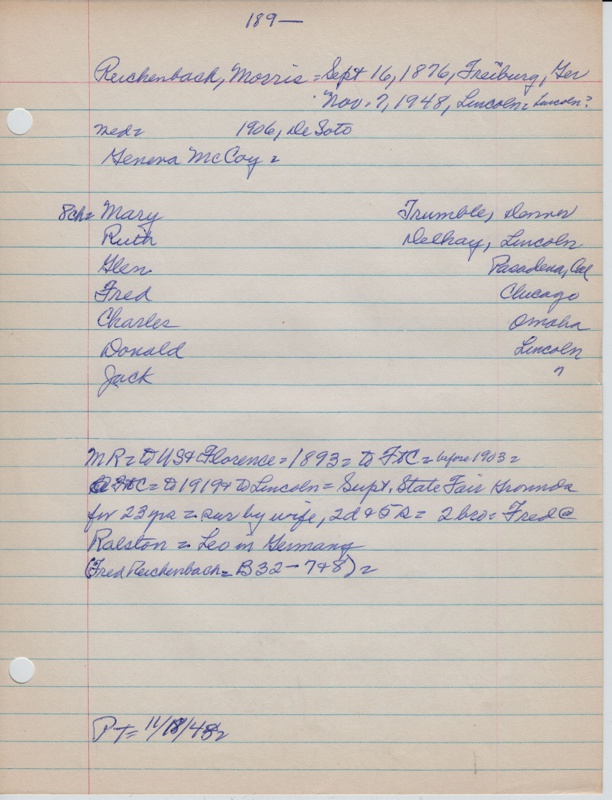 189—
Reichenbach, Morris = Sept 16, 1876, Freiburg, Ger
Nov. 7, 1948, Lincoln = Lincoln?
med = 1906, DeSoto
Geneva McCoy =
8ch = Mary Trumble, Denver
Ruth Delhay, Lincoln
Glen Pasadena, Cal
Fred Chicago
Charles Omaha
Donald Lincoln
Jack ?
MR = to US & Florence = 1893 = to FtC = before 1903 =
@ FtC = to 1919 & to Lincoln = Supt. State Fair Grounds
for 23 yrs = sur by wife, 2d & 5s = 2 bro = Fred @
Ralston = Leo in Germany
(Fred Reichenbach = B32 - 7 & 8) =
PT = 11/18/48 =